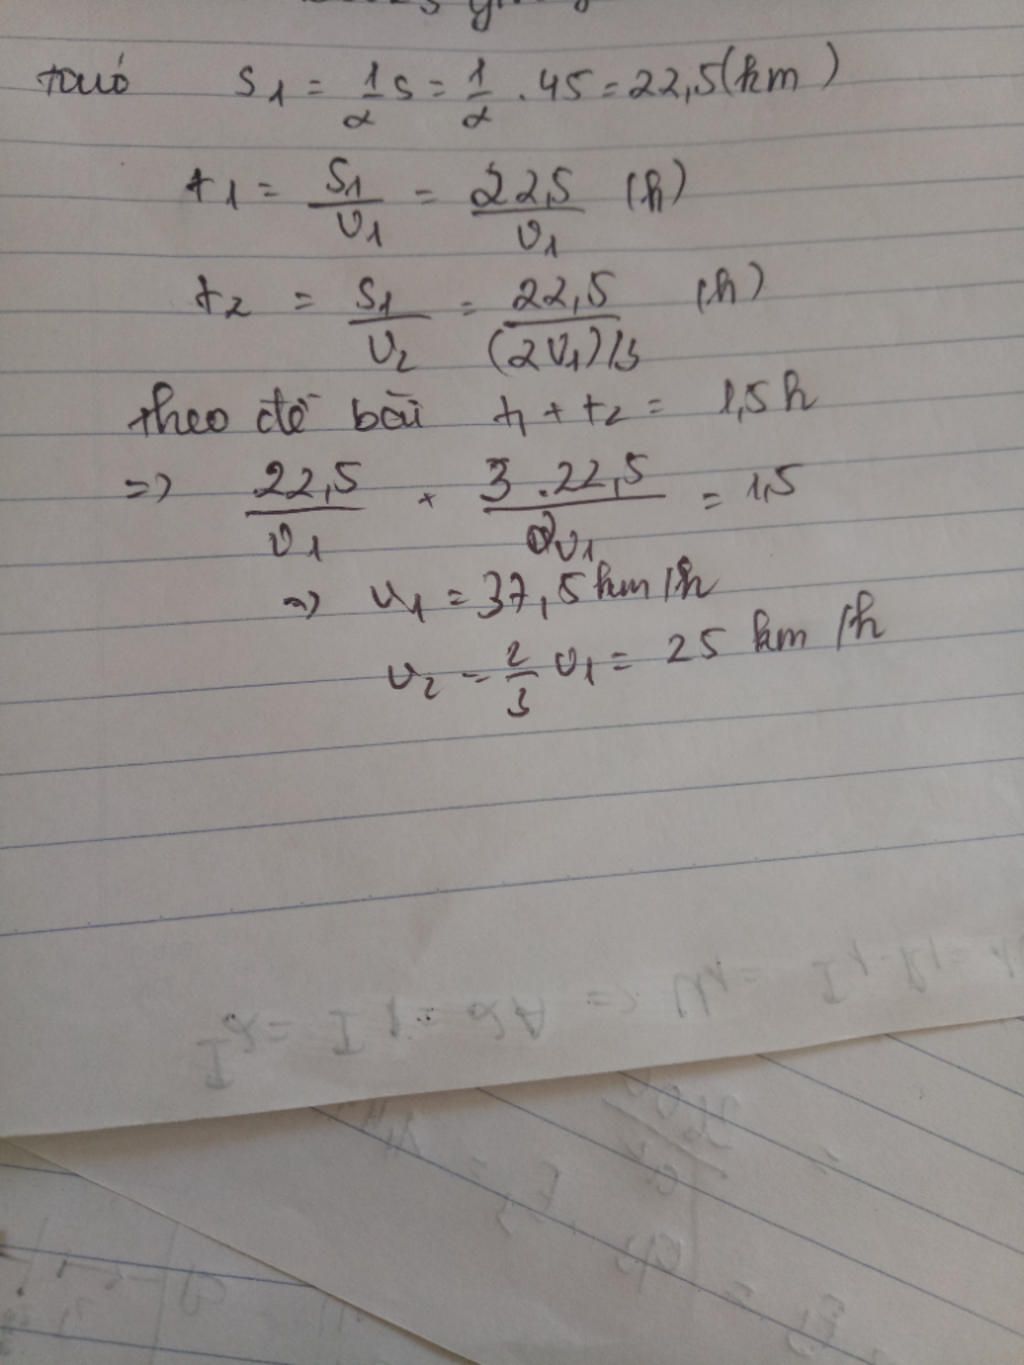 ta có S1 = 1/2 S = 1/2 . 45 = 22,5 (km)
t1 = S1/v1 = 22,5/v1 (h)
t2 = S1/v2 = 22,5/(2v1)/3 (h)
theo đề bài t1 + t2 = 1,5h
=> 22,5/v1 + 3.22,5/2v1 = 1,5
=> v1 = 37,5 km/h
v2 = 2/3 v1 = 25 km/h